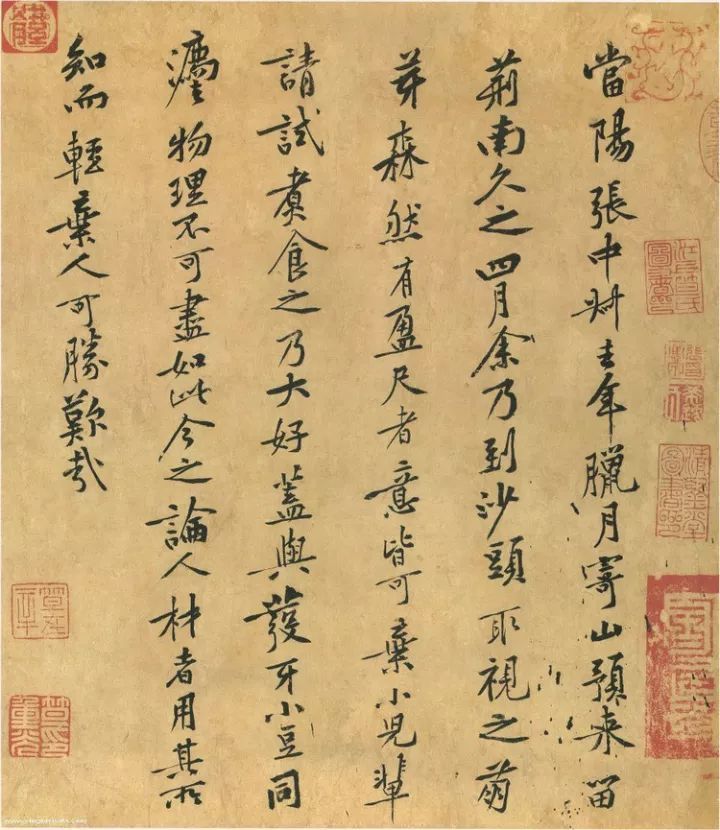 當陽張中叔去年臘月寄山預來留
荊南久之四月余乃到沙頭取視之萌
芽森然有盈尺者意皆可棄小兒輩
請試煮食之乃大好蓋與發牙小豆同
瀍物理不可盡如此今之論人材者用其所
知而輕棄人可勝歎哉